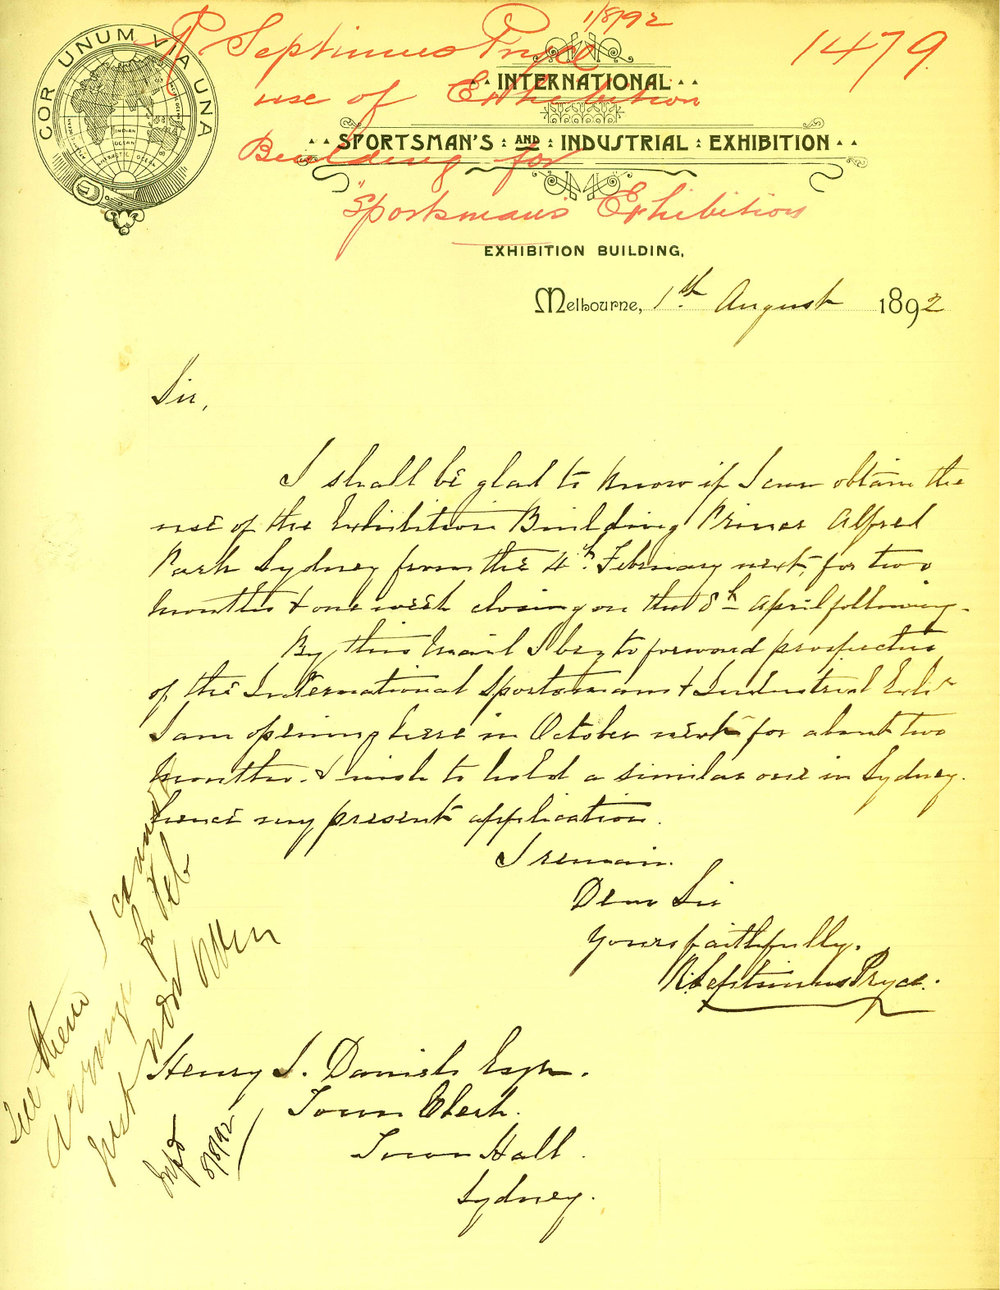 COR UNUM VIA UNA
1/8/92
R Septimus Pryce
1479
use of Exhibition
Building for
"Sportsman's" Exhibition
INTERNATIONAL
SPORTSMAN'S AND INDUSTRIAL EXHIBITION
EXHIBITION BUILDING,
Melbourne, 1st August 1892
Sir,
I shall be glad to know if I can obtain the
use of the Exhibition Building Prince Alfred
Park Sydney from the 4th February next, for two
months & one week closing on the 8th April following.
By this mail I beg to forward prospectus
of the International Sportsmans & Industrial Exhn
I am opening here in October next for about two
months. & wish to hold a similar one in Sydney.
hence my present application.
I remain.
Dear Sir
Yours faithfully.
R. Septimus Pryce.
Henry S. Daniels Esqr.
Town Clerk.
Town Hall.
Sydney.
Tell them I cannot
arrange for Feb
just now
8/8/92